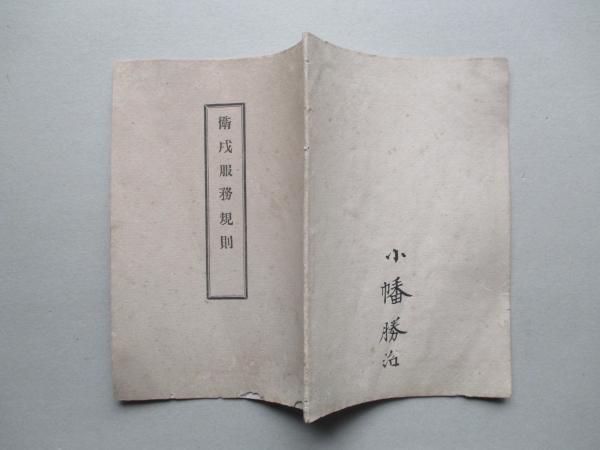 衛戍服務規則
小幡勝治